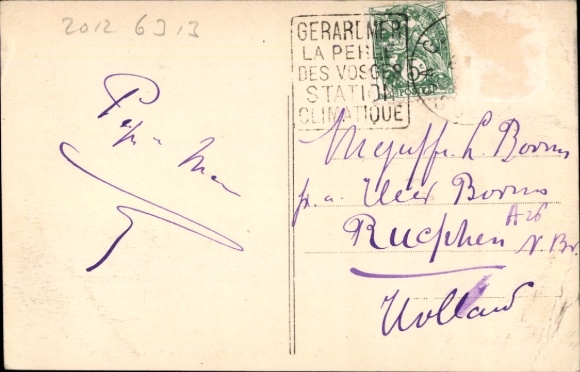 2012 6313
GERARDMER
LA PERLE
DES VOSGES
STATION
CLIMATIQUE
5c
Pap. Mam
Mejuffr. L. Booms
p.a. Heer Booms
Rucphen
A26
N. Br.
Holland